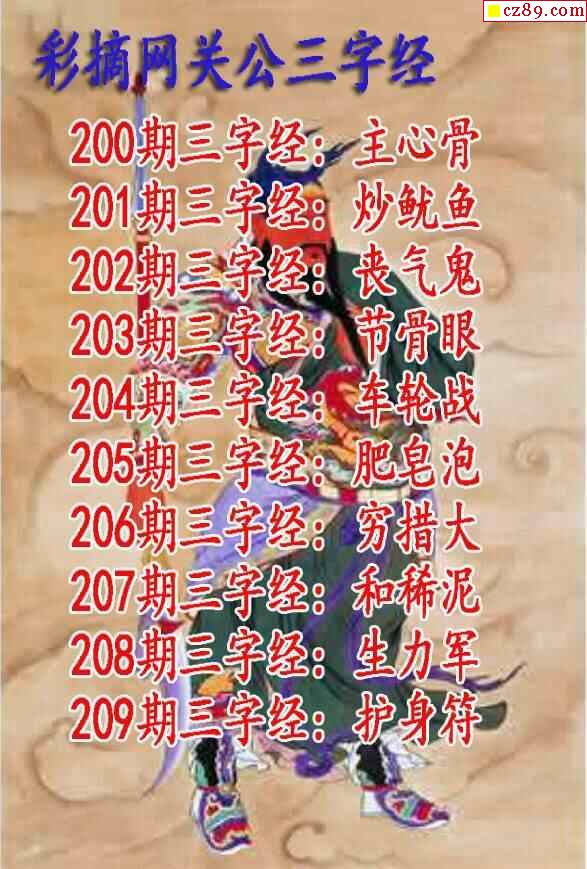 cz89.com
彩摘网关公三字经
200期三字经：主心骨
201期三字经：炒鱿鱼
202期三字经：丧气鬼
203期三字经：节骨眼
204期三字经：车轮战
205期三字经：肥皂泡
206期三字经：穷措大
207期三字经：和稀泥
208期三字经：生力军
209期三字经：护身符